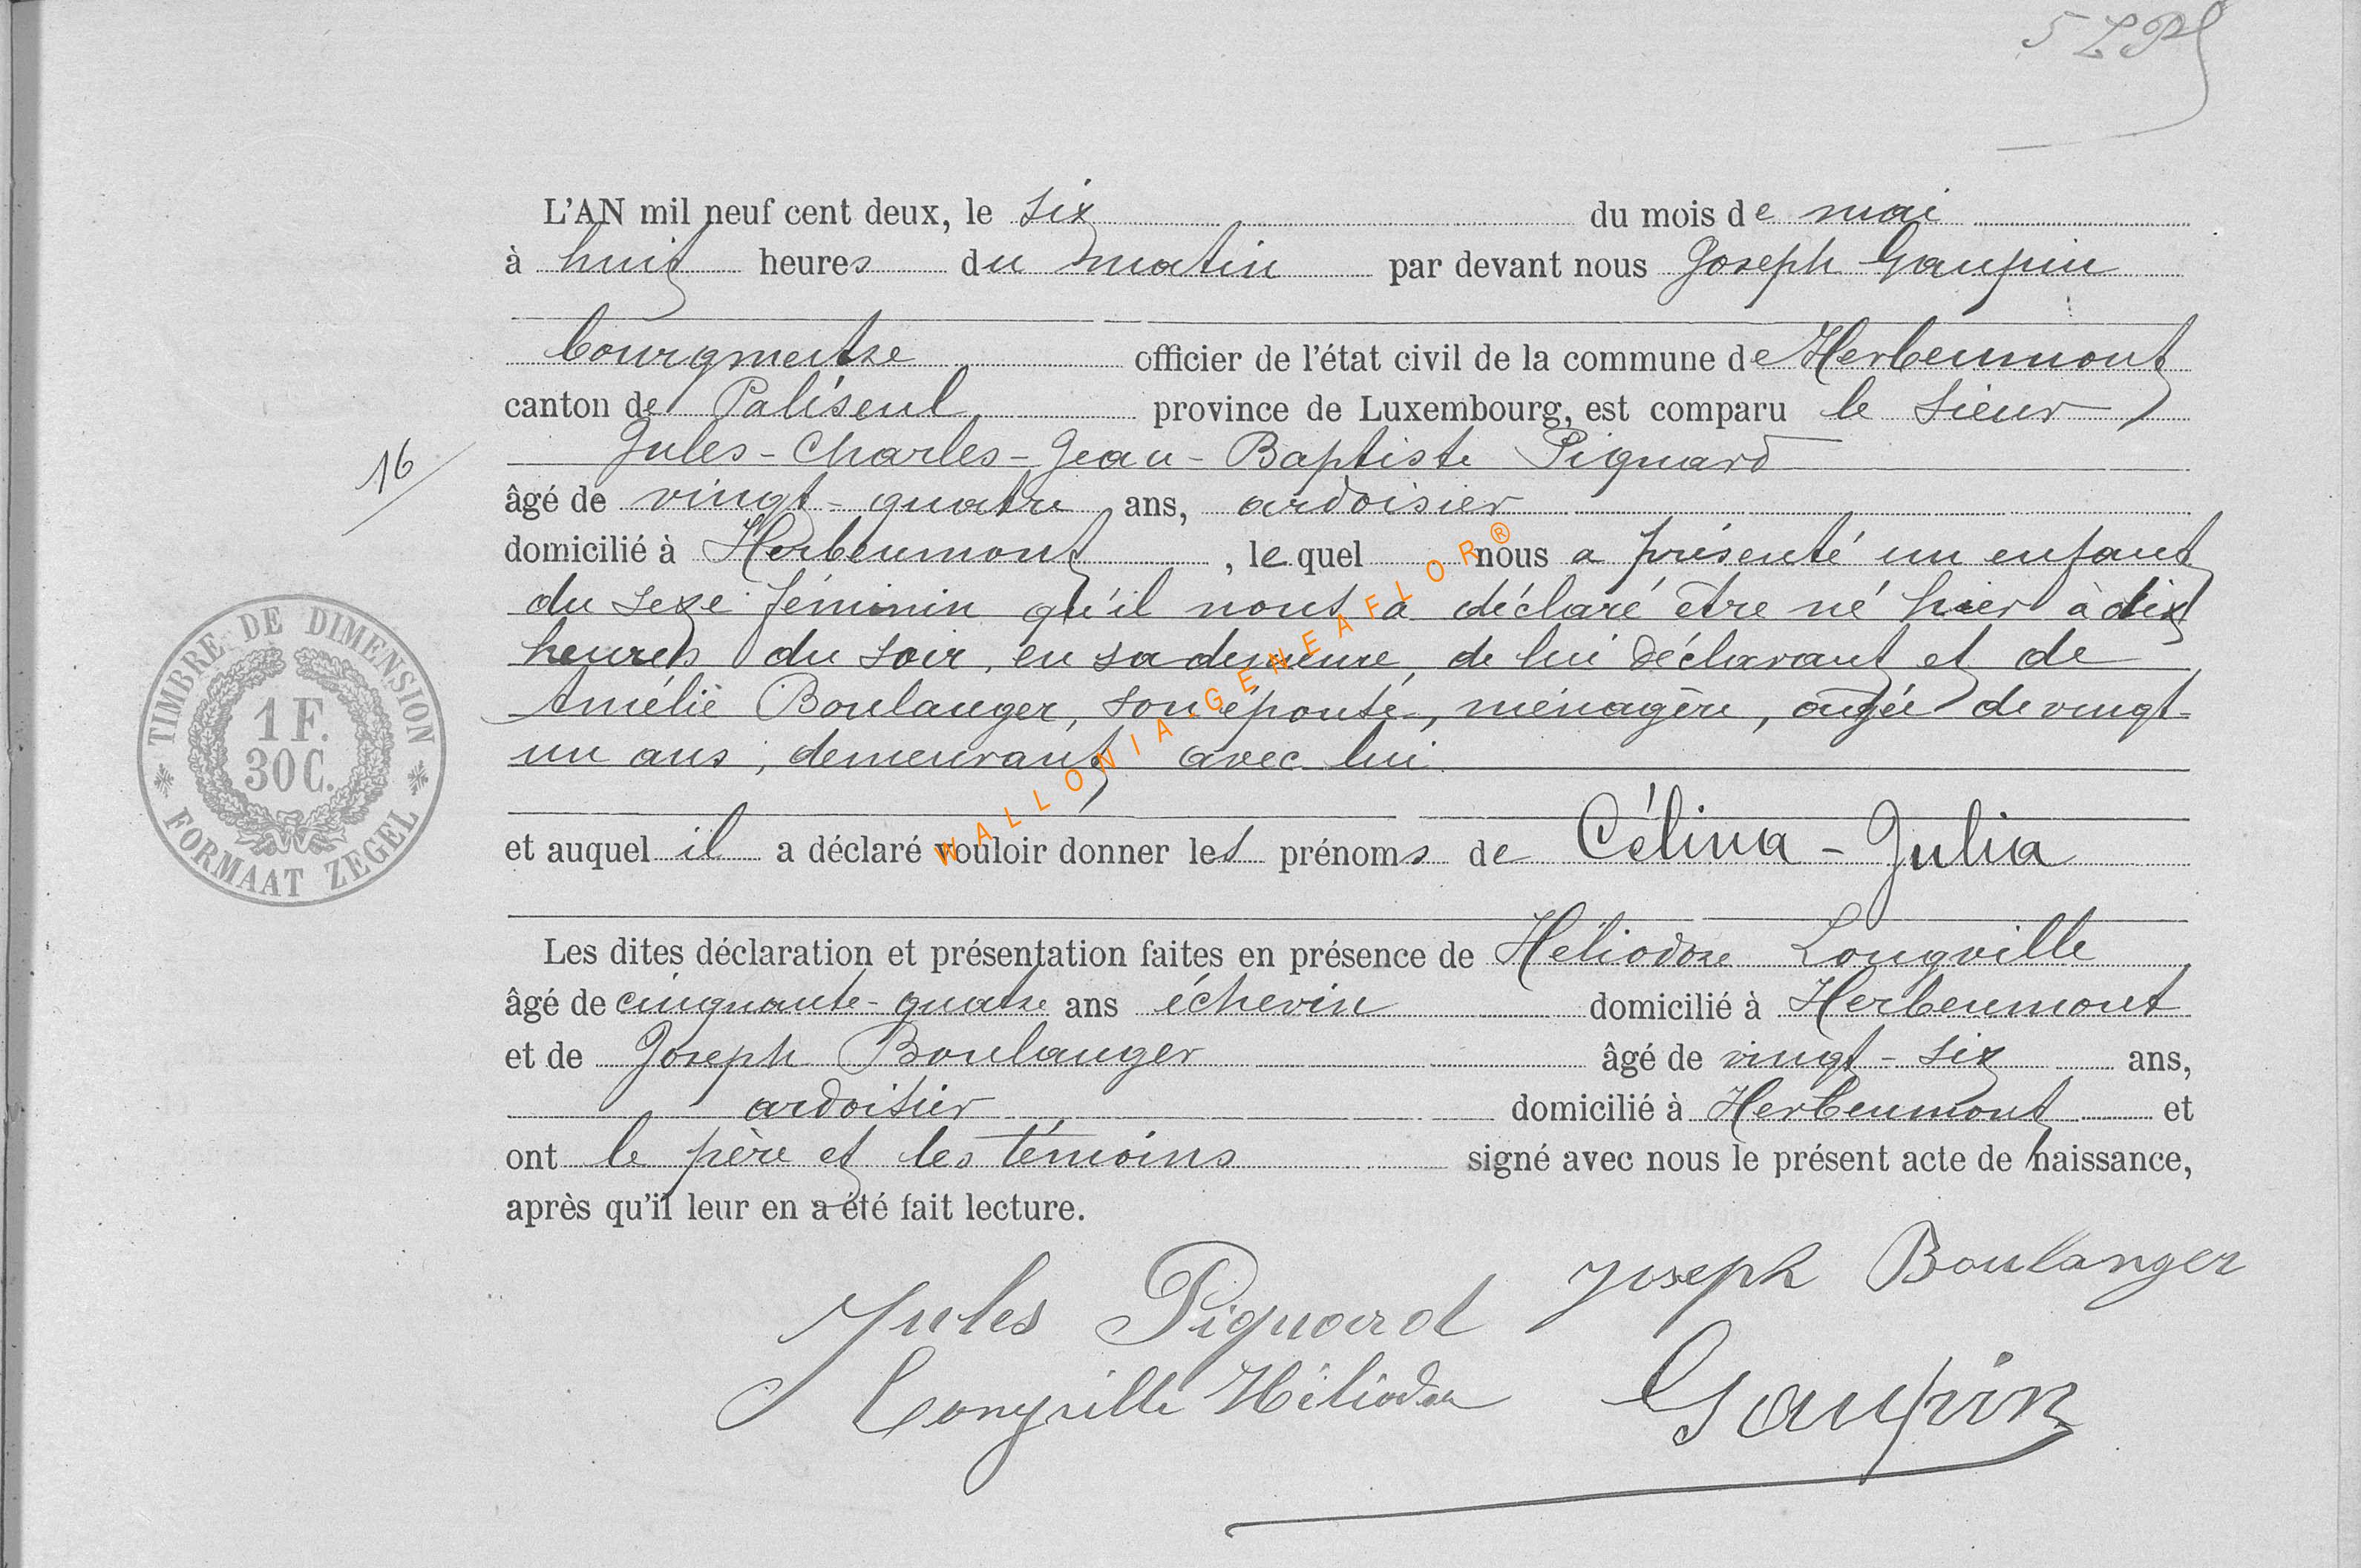 L'AN mil neuf cent deux, le six du mois de mai
à huit heures du matin par devant nous Joseph Gaupin
bourgmestre officier de l'état civil de la commune de Herbeumont
canton de Paliseul province de Luxembourg, est comparu le sieur
Jules-Charles-Jean-Baptiste Pignard
16
âgé de vingt-quatre ans, ardoisier
domicilié à Herbeumont, lequel nous a présenté un enfant
du sexe féminin qu'il nous a déclaré être né hier à dix
heures du soir, en sa demeure, de lui déclarant et de
Amélie Boulanger, son épouse, ménagère, âgée de vingt-
un ans, demeurant avec lui
et auquel il a déclaré vouloir donner les prénoms de Célina-Julia
Les dites déclaration et présentation faites en présence de Héliodore Longville
âgé de cinquante-quatre ans échevin domicilié à Herbeumont
et de Joseph Boulanger âgé de vingt-six ans,
ardoisier domicilié à Herbeumont et
ont le père et les témoins signé avec nous le présent acte de naissance,
après qu'il leur en a été fait lecture.
Joseph Boulanger
Jules Pignard
Longville Héliodore
Gaupin
TIMBRE DE DIMENSION
1 F.
30 C.
FORMAAT ZEGEL
WALLONIA-GENEAFLOR®